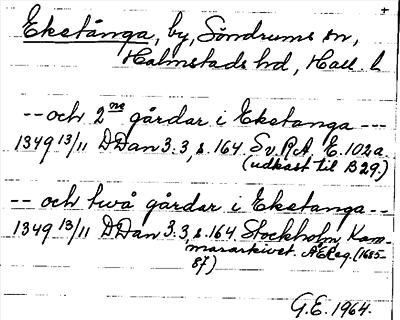 +
Eketånga, by, Söndrums sn,
Halmstads hd, Hall. l.
-- och 2 ne gårdar i Eketanga ---
1349 13/11 DDan 3.3, s. 164. Sv. R.A. E. 102a.
(udkast til B 29.)
-- och twå gårdar i Eketanga --
1349 13/11 DDan 3.3, s. 164. Stockholm, Kam-
mararkivet. ÄEReg. (1685-
87)
G.E. 1964.